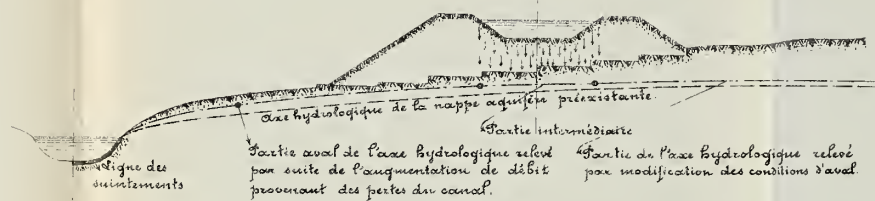 Axe hydrologique de la nappe aquifère préexistante.
Partie intermédiaire
Ligne des
suintements
Partie aval de l'axe hydrologique relevé
par suite de l'augmentation de débit
provenant des pertes du canal.
Partie de l'axe hydrologique relevé
par modification des conditions d'aval.